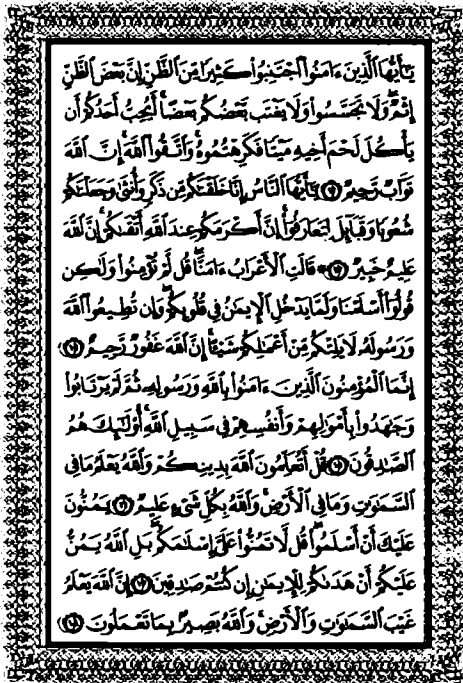 يَٰٓأَيُّهَا ٱلَّذِينَ ءَامَنُوا۟ ٱجْتَنِبُوا۟ كَثِيرًا مِّنَ ٱلظَّنِّ إِنَّ بَعْضَ ٱلظَّنِّ
إِثْمٌ ۖ وَلَا تَجَسَّسُوا۟ وَلَا يَغْتَب بَّعْضُكُم بَعْضًا ۚ أَيُحِبُّ أَحَدُكُمْ أَن
يَأْكُلَ لَحْمَ أَخِيهِ مَيْتًا فَكَرِهْتُمُوهُ ۚ وَٱتَّقُوا۟ ٱللَّهَ ۚ إِنَّ ٱللَّهَ
تَوَّابٌ رَّحِيمٌ ١٢ يَٰٓأَيُّهَا ٱلنَّاسُ إِنَّا خَلَقْنَٰكُم مِّن ذَكَرٍ وَأُنثَىٰ وَجَعَلْنَٰكُمْ
شُعُوبًا وَقَبَآئِلَ لِتَعَارَفُوٓا۟ ۚ إِنَّ أَكْرَمَكُمْ عِندَ ٱللَّهِ أَتْقَىٰكُمْ ۚ إِنَّ ٱللَّهَ
عَلِيمٌ خَبِيرٌ ١٣ ۞ قَالَتِ ٱلْأَعْرَابُ ءَامَنَّا ۖ قُل لَّمْ تُؤْمِنُوا۟ وَلَٰكِن
قُولُوٓا۟ أَسْلَمْنَا وَلَمَّا يَدْخُلِ ٱلْإِيمَٰنُ فِى قُلُوبِكُمْ ۖ وَإِن تُطِيعُوا۟ ٱللَّهَ
وَرَسُولَهُۥ لَا يَلِتْكُم مِّنْ أَعْمَٰلِكُمْ شَيْـًٔا ۚ إِنَّ ٱللَّهَ غَفُورٌ رَّحِيمٌ ١٤
إِنَّمَا ٱلْمُؤْمِنُونَ ٱلَّذِينَ ءَامَنُوا۟ بِٱللَّهِ وَرَسُولِهِۦ ثُمَّ لَمْ يَرْتَابُوا۟
وَجَٰهَدُوا۟ بِأَمْوَٰلِهِمْ وَأَنفُسِهِمْ فِى سَبِيلِ ٱللَّهِ ۚ أُو۟لَٰٓئِكَ هُمُ
ٱلصَّٰدِقُونَ ١٥ قُلْ أَتُعَلِّمُونَ ٱللَّهَ بِدِينِكُمْ وَٱللَّهُ يَعْلَمُ مَا فِى
ٱلسَّمَٰوَٰتِ وَمَا فِى ٱلْأَرْضِ ۚ وَٱللَّهُ بِكُلِّ شَىْءٍ عَلِيمٌ ١٦ يَمُنُّونَ
عَلَيْكَ أَنْ أَسْلَمُوا۟ ۖ قُل لَّا تَمُنُّوا۟ عَلَىَّ إِسْلَٰمَكُم ۖ بَلِ ٱللَّهُ يَمُنُّ
عَلَيْكُمْ أَنْ هَدَىٰكُمْ لِلْإِيمَٰنِ إِن كُنتُمْ صَٰدِقِينَ ١٧ إِنَّ ٱللَّهَ يَعْلَمُ
غَيْبَ ٱلسَّمَٰوَٰتِ وَٱلْأَرْضِ ۚ وَٱللَّهُ بَصِيرٌۢ بِمَا تَعْمَلُونَ ١٨